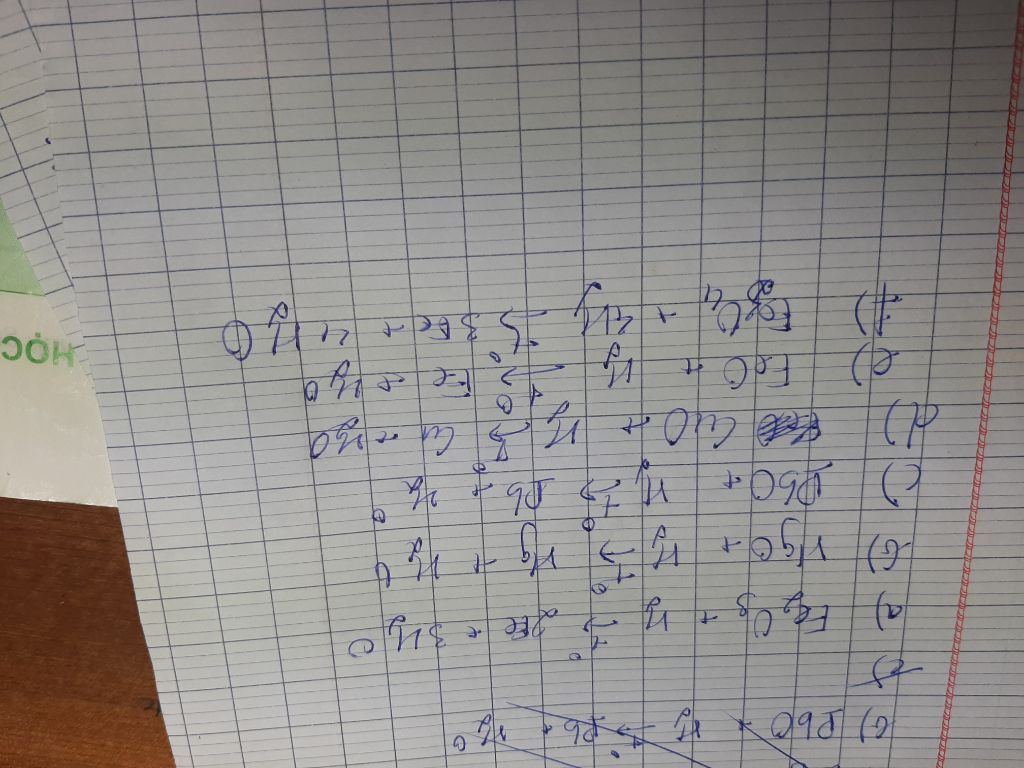 b) PbO + H₂ →t° Pb + H₂O
a) Fe₂O₃ + H₂ →t° 2Fe + 3H₂O
b) HgO + H₂ →t° Hg + H₂O
c) PbO + H₂ →t° Pb + H₂O
d) CuO + H₂ →t° Cu + H₂O
e) FeO + H₂ →t° Fe + H₂O
f) Fe₃O₄ + 4H₂ →t° 3Fe + 4H₂O
HỌC